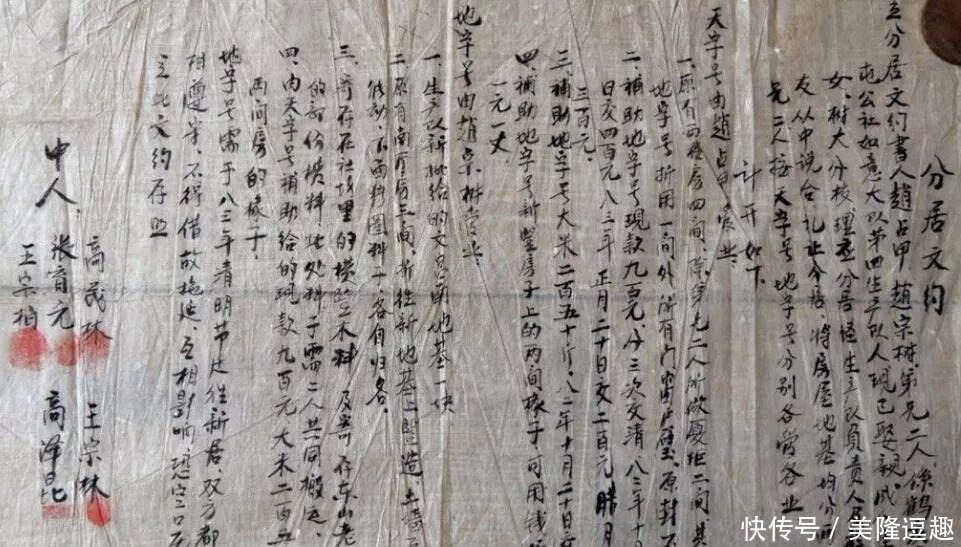 分居文约
立分居文约书人赵占甲 赵宗树弟兄二人，係鹤
屯公社如意大队第四生产队人现已娶親，成
女，树大分枝，理应分居经生产队负责人
友从中说合，礼让分居，将房屋地基均分
兄二人按天字号、地字号分别各管各业
计开如下
天字号由赵占甲管业。
一、原有西楼房四间，除弟兄二人所做厦柜二间其
地字号折用一间外所有门窗户
二、補助地字号现款九百元，分三次交清，八二年十
日交四百元八三年正月二十日交二百元 腊月
三百元。
三、補助地字号大米二百五十斤，八二年十月二十日交
四、補助地字号新竖房子上的两间椽子可用钱
一元一丈
地字号由赵宗树管业。
一、生产队新批给的文昌南地基一块
二、原有南厅房三间，折往新地基上竖造，土墙
各自归各。
三、寄存在社场里的横竖木料及寄存东山老
的部份横料此处料子需二人共同搬运
四、由天字号補助给的现款九百元 大米二百五
两间房的椽子。
地字号需于八三年清明节迁往新居，双方都
相遵守，不得借故拖延，互相影响，恐空口
立此文约存照
中人：
高茂林
张育元
王宗柏
王宗林
高泽昆
快传号／美隆逗趣